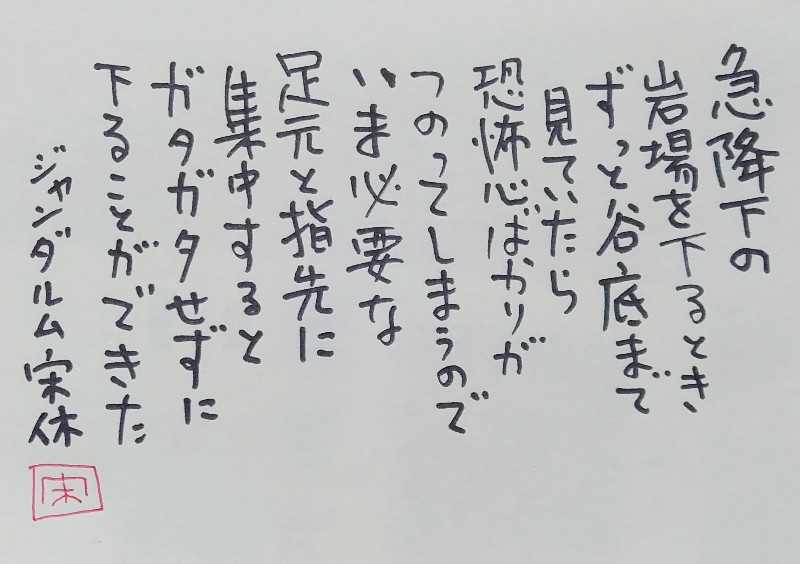 急降下の
岩場を下るとき
ずっと谷底まで
見ていたら
恐怖心ばかりが
つのってしまうので
いま必要な
足元と指先に
集中すると
ガタガタせずに
下ることができた
ジャンダルム宋休
宋